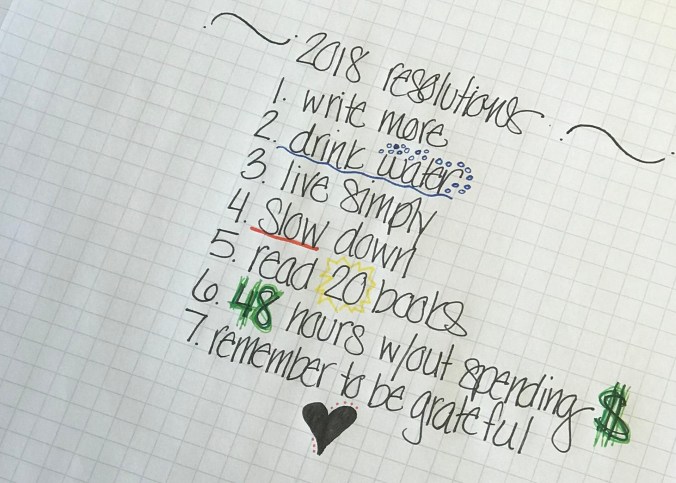 2018 resolutions
1. write more
2. drink water
3. live simply
4. Slow down
5. read 20 books
6. 48 hours w/out spending $
7. remember to be grateful